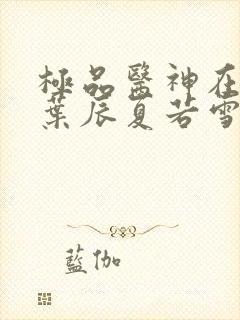 極品醫神在
葉辰夏若雪
藍伽